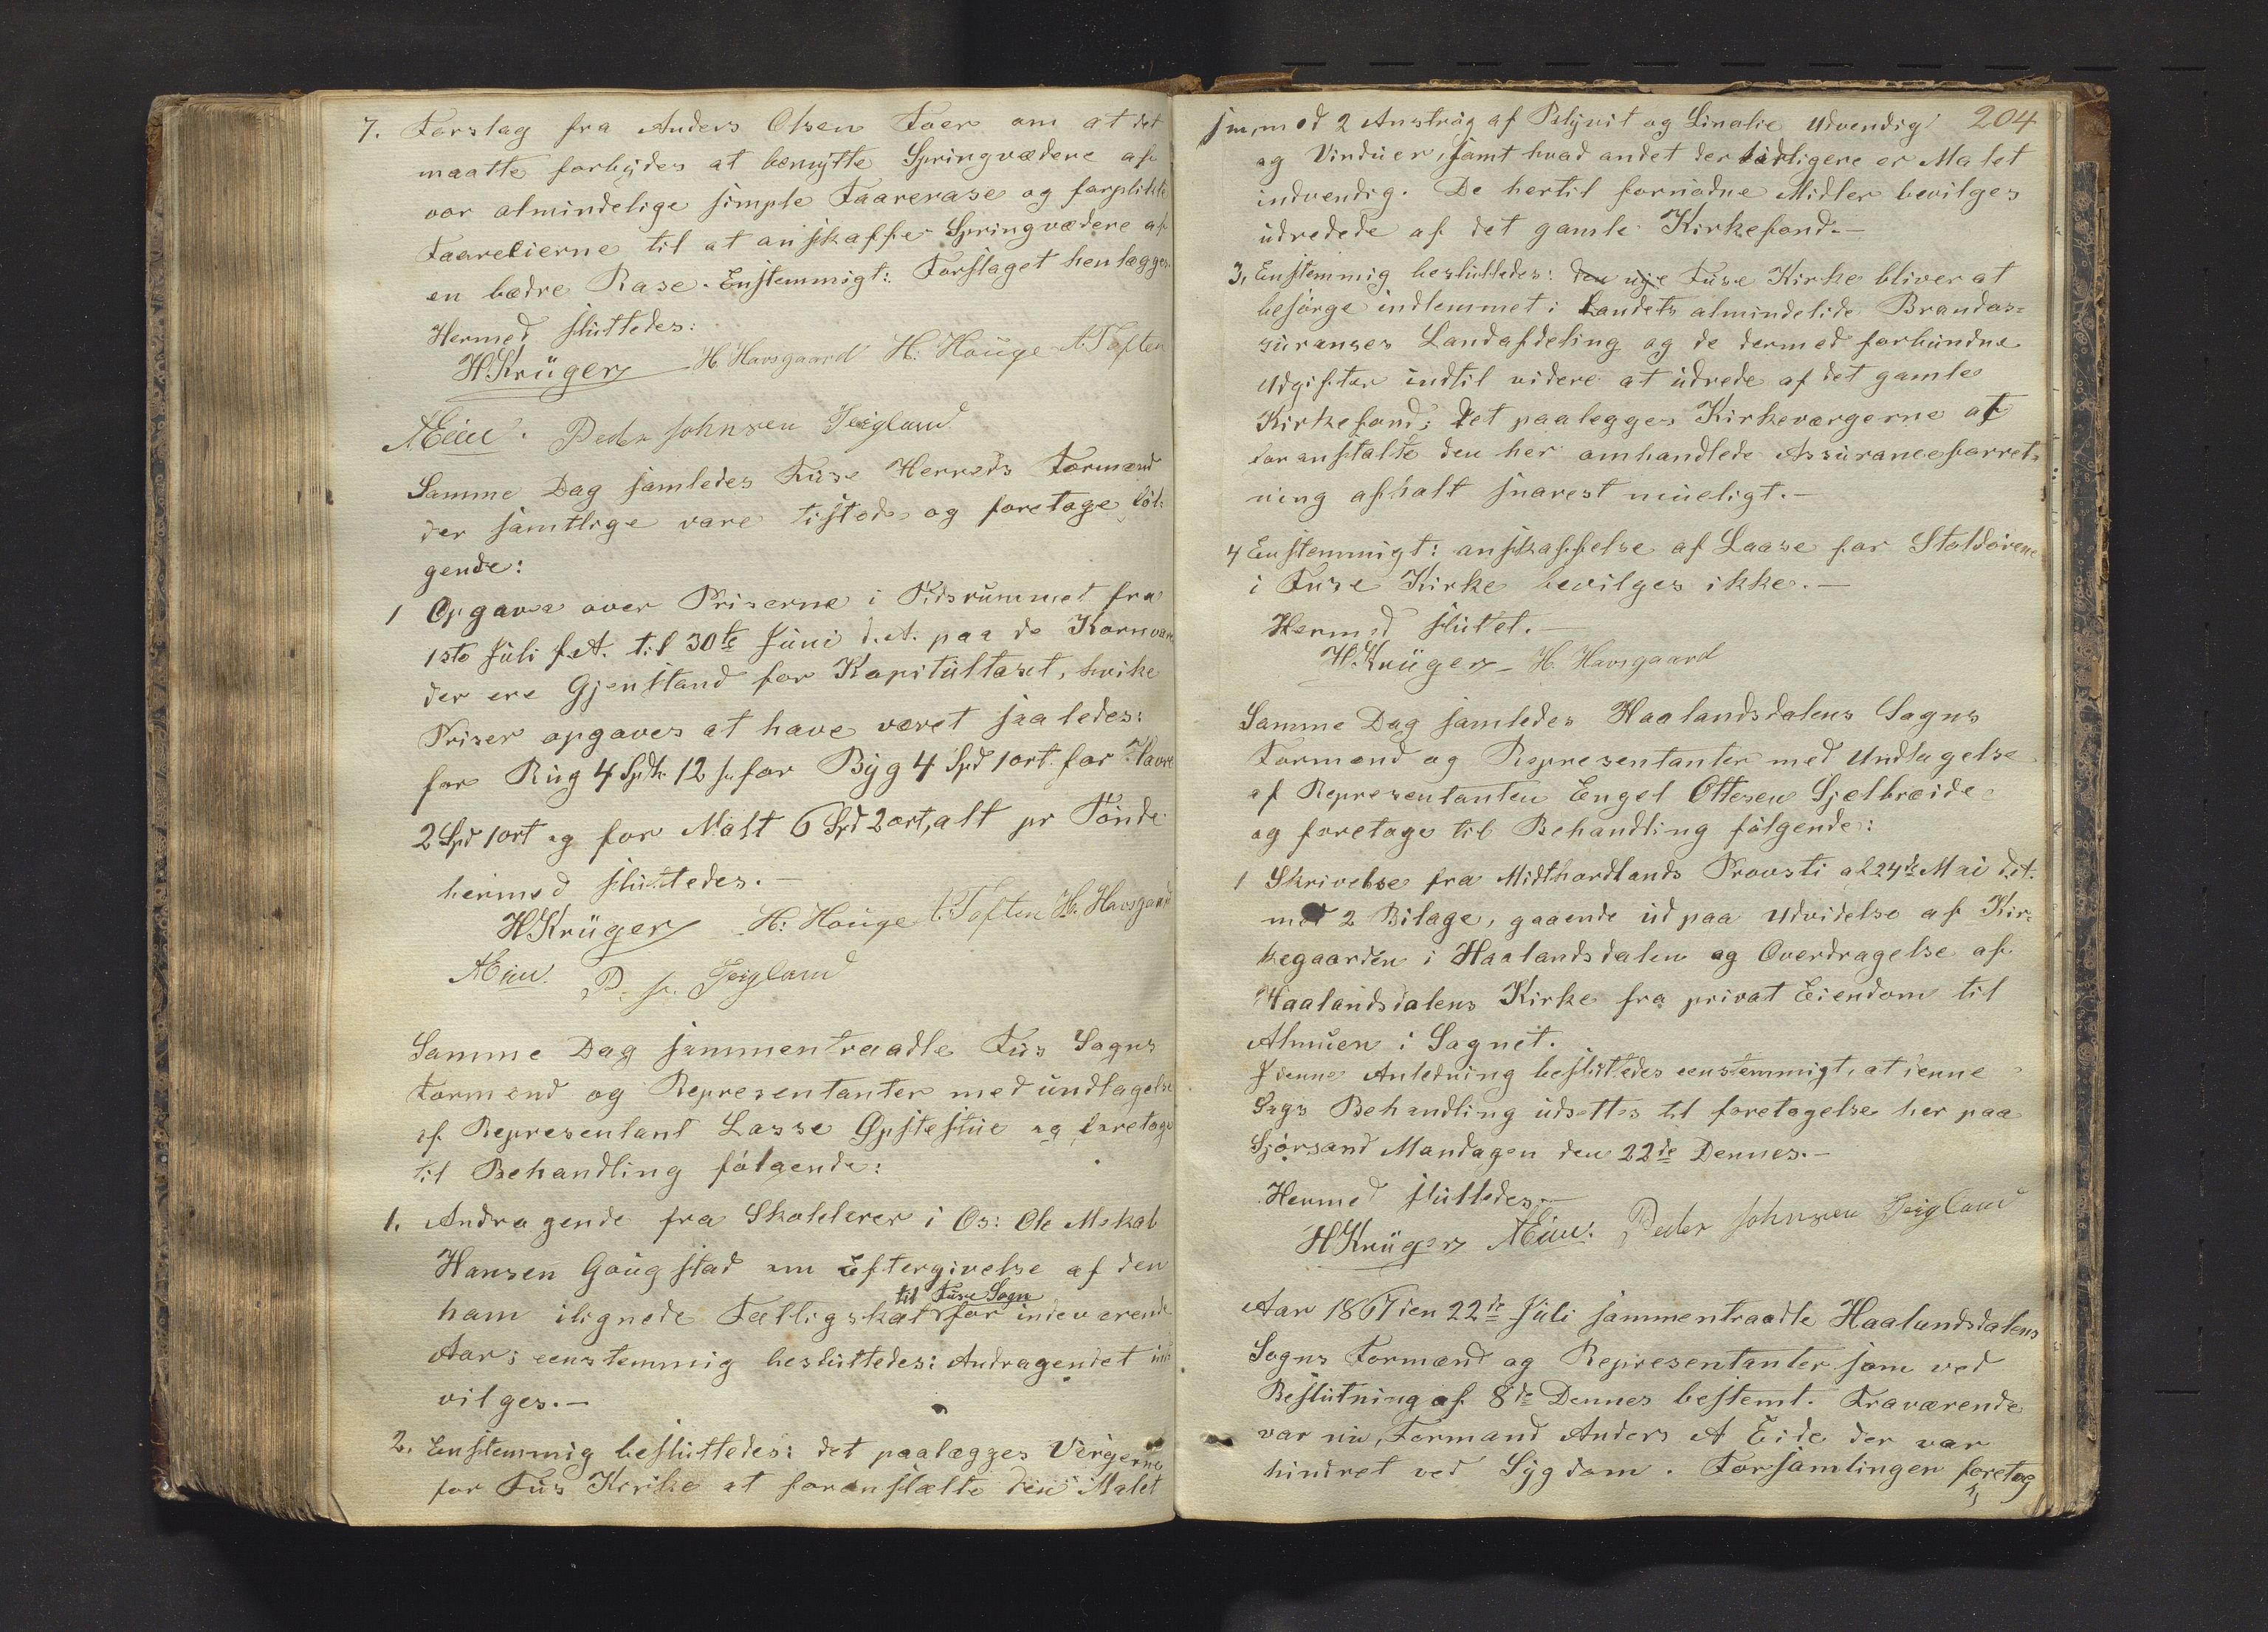 7. Forslag fra Anders Olsen Toer om at det
maatte forbydes at benytte Springvædere af
vor almindelige simple Faarerase og forplikte
Faareeierne til at anskaffe Springvædere af
en bædre Rase. Enstemmigt: Forslaget henlægges.
Hermed sluttedes:
HKrüger H. Havsgaard H: Houge A. Toften
AEide. Peder Johnsen Teigland
Samme Dag samledes Fuse Herreds Formænd
der samtlige vare tistede og foretoge föl-
gende:
1 Opgava over Priserne i Tidsrummet fra
1ste Juli f.A. til 30te Juni d.A. paa de Kornvare
der ere Gjenstand for Kapitultaxt, hvike
Priser opgaves at have været saaledes:
for Rug 4 Spdr. 12 s. for Byg 4 Spd 1 ort. for Havre
2 Spd 1 ort og for Malt 6 Spd 2 ort, alt pr Tönde
hermed sluttedes.-
HKrüger H: Houge A. Toften H. Havsgaard
AEide P. J. Teigland
Samme Dag sammentraadte Fus Sogns
Formænd og Representanter med undtagelse
af Representant Lasse Opstestue og foretoge
til Behandling fölgende:
1. Andragende fra Skolelærer i Os: Ole Mskal
Hansen Gaugstad om Eftergivelse af den
til Fuse Sogn
ham ilignede Fattigskat for indeværende
Aar; eenstemmig besluttedes: Andragendet ind
vilges.-
2. Enstemmig besluttedes: det paalægges Vergerne
for Fus Kirke at foranstalte den Malet
204
sm, med 2 Anströg af Blyvit og Linolie Udvendig
og Vinduer, samt hvad andet der tidligere er Malet
indvendig. De hertil fornödne Midler bevilges
udredede af det gamle Kirkefond.-
3, Enstemmig besluttedes: den nye Fuse Kirke bliver at
besörge indlemmet i Landets almindelide Brandas-
suranses Landafdeling og de dermed forbundne
Udgifter indtil videre at udrede af det gamle
Kirkefond; det paalegges Kirkeværgerne at
foranstalte den her omhandlede Assuranceforret-
ning afholt snarest mueligt.-
4 Enstemmigt: anskaffelse af Laase for Stoldörene
i Fuse Kirke bevilges ikke.-
Hermed slutet.-
HKrüger H. Havsgaard
Samme Dag samledes Haalandsdalens Sogns
Formænd og Representanter med Undtagelse
af Representanten Engel Ottesen Gjelbreide
og foretoge til Behandling fölgende:
1 Skrivelse fra Midthordlands Provsti af 24de Mai d.A.
med 2 Bilage, gaaende ud paa Udvidelse af Kir-
kegaarden i Haalandsdalen og Overdragelse af
Haalandsdalens Kirke fra privat Eiendom til
Almuen i Sognet.
I denne Anledning besluttedes eenstemmigt, at denne
Sags Behandling udsettes til foretagelse her paa
Sjörsand Mandagen den 22de Dennes.-
Hermed sluttedes.-
HKrüger AEide. Peder Johnsen Teigland
Aar 1867 den 22de Juli sammentraadte Haalandsdalens
Sogns Formænd og Representanter som ved
Beslutning af 8de Dennes bestemt. Fraværende
var nu, Formand Anders A Eide der var
hindret ved Sygdom. Forsamlingen foretog